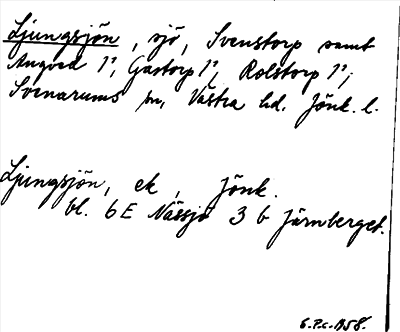 Ljungsjön, sjö, Svenstorp samt
Angved 1², Gastorp 1², Rolstorp 1²,
Svenarums sn, Västra hd. Jönk. l.
Ljungsjön, ek, Jönk.
bl. 6 E Nässjö 3 b Järnberget.
G.P.c. 1958.